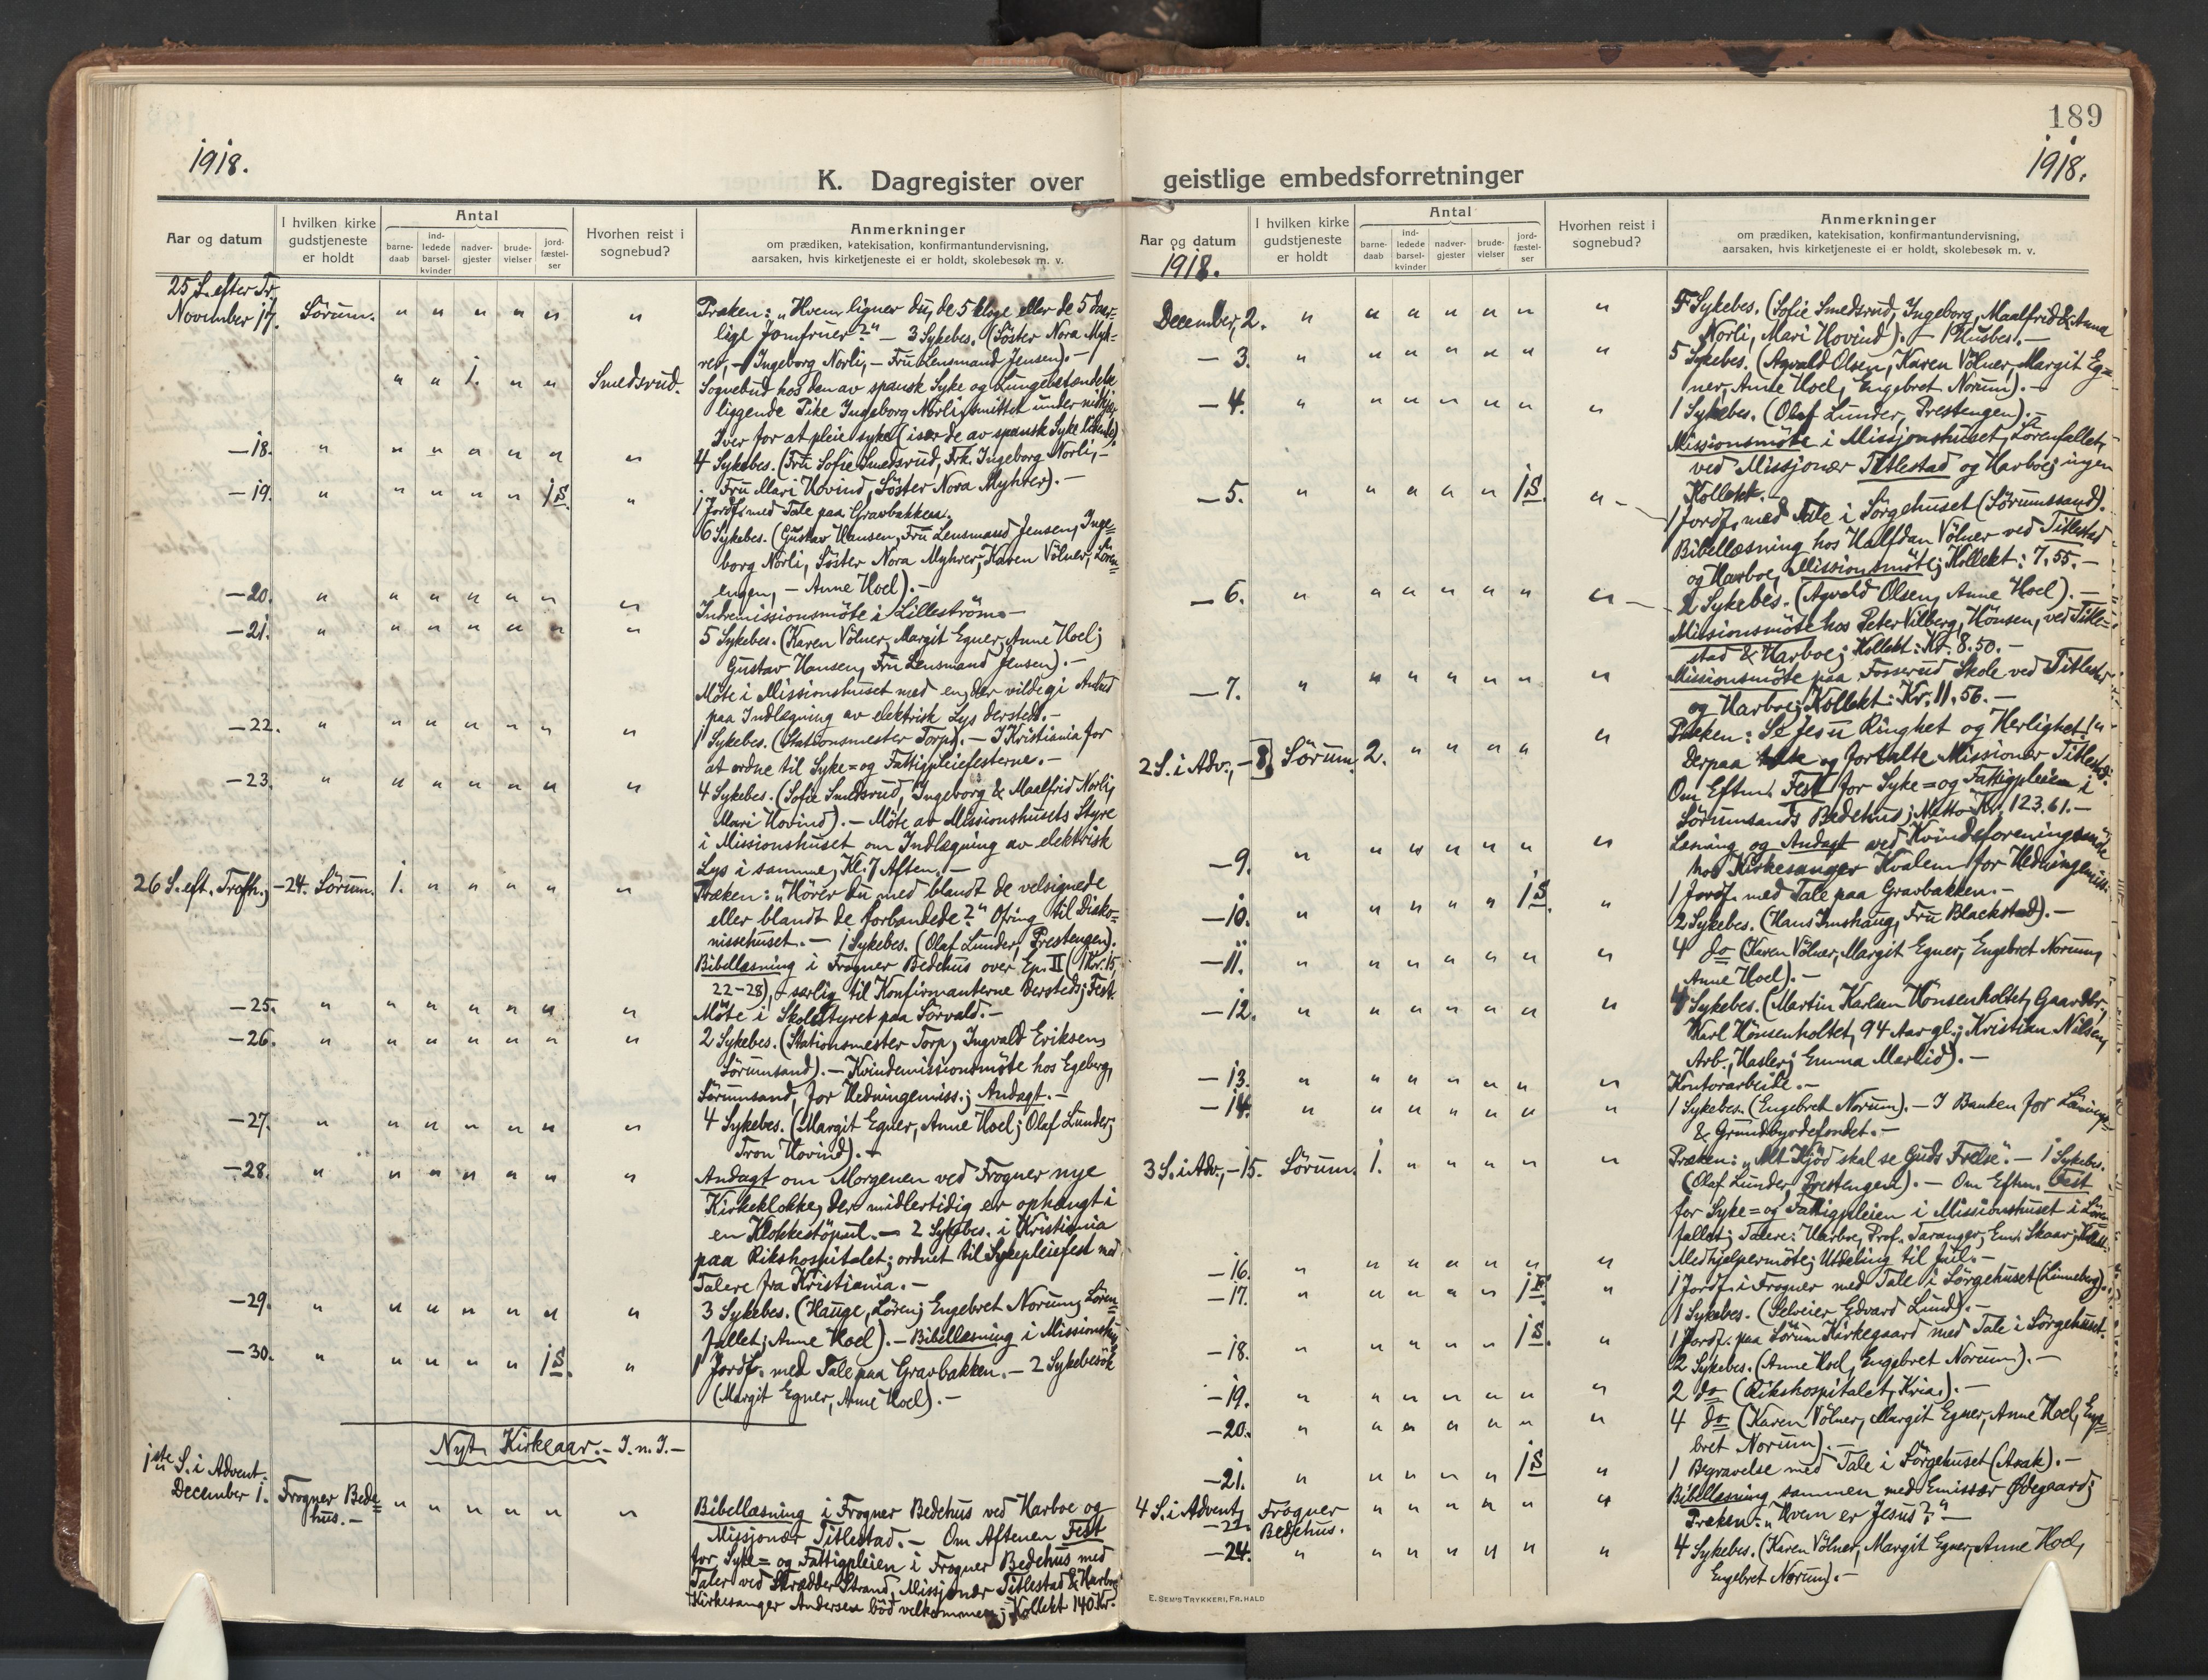 1918.
K. Dagregister over
Aar og datum
I hvilken kirke gudstjeneste er holdt
Antal
barne-daab
ind-ledede barsel-kvinder
nadver-gjester
brude-vielser
jord-fæstel-ser
Hvorhen reist i sognebud?
Anmerkninger
om prædiken, katekisation, konfirmantundervisning,
aarsaken, hvis kirketjeneste ei er holdt, skolebesøk m. v.
25 S. efter Tr.
November 17. Sörum. " " " " " " Præken: "Hvem ligner du, de 5 kloge eller de 5 daar-
lige Jomfruer?" — 3 Sykebes. (Söster Nora Myh-
rer, — Ingeborg Norli, — Fru Lensmand Jensen). —
" " 1. " " Smedsrud. Sognebud hos den av spansk Syke og Lungebetændelse
liggende Pike Ingeborg Norli, smittet under nidkjær
Iver for at pleie syke (især de av spansk Syke lidende).
—18. " " " " " " " 4 Sykebes. (Fru Sofie Smedsrud, Frk. Ingeborg Norli, —
Fru Mari Hovind, Söster Nora Myhrer). —
—19. " " " " " 1 S. " 1 Jordf. med Tale paa Gravbakken.
6 Sykebes. (Gustav Hansen, Fru Lensmand Jensen, Inge-
borg Norli, Söster Nora Myhrer, Karen Völner, Lören-
engen, — Anne Hoel). —
—20. " " " " " " " Indremissionsmöte i Lilleström. —
—21. " " " " " " " 5 Sykebes. (Karen Völner, Margit Egner, Anne Hoel;
Gustav Hansen, Fru Lensmand Jensen). —
Möte i Missionshuset med en, der vilde gi Anbud
paa Indlægning av elektrisk Lys dersteds. —
—22. " " " " " " " 1 Sykebes. (Stationsmester Torp). — I Kristiania for
at ordne til Syke= og Fattigpleiefesterne. —
—23. " " " " " " " 4 Sykebes. (Sofie Smedsrud, Ingeborg & Maalfrid Norli,
Mari Hovind). — Möte av Missionshusets Styre
i Missionshuset om Indlægning av elektrisk
Lys i samme, Kl. 7 Aften. —
26 S. eft. Trefh., —24. Sörum. 1. " " " " " Præken: "Hörer du med blandt de velsignede
eller blandt de forbandede?" Ofring til Diako-
nissehuset. — 1 Sykebes. (Olaf Lunder, Prestengen).
Bibellæsning i Frogner Bedehus over Ep. II (1 Kor. 15,
22-28), særlig til Konfirmanterne dersteds; Fest.
—25. " " " " " " " Möte i Skolestyret paa Sörvald. —
—26. " " " " " " " 2 Sykebes. (Stationsmester Torp, Ingvald Eriksen,
Sörumsand). — Kvindemissionsmöte hos Egeberg,
Sörumsand, for Hedningemiss.; Andagt. —
—27. " " " " " " " 4 Sykebes. (Margit Egner, Anne Hoel; Olaf Lunder;
Tron Hovind). —
—28. " " " " " " " Andagt om Morgenen ved Frogner nye
Kirkeklokke, der midlertidig er ophængt i
en Klokkestöpul. — 2 Sykebes. i Kristiania
paa Rikshospitalet; ordnet til Sykepleiefest med
Talere fra Kristiania. —
—29. " " " " " " " 3 Sykebes. (Hauge, Lören; Engebret Norum, Lören-
fallet; Anne Hoel). — Bibellæsning i Missionshus.
—30. " " " " " 1 S. " 1 Jordf. med Tale paa Gravbakken. — 2 Sykebesök
(Margit Egner, Anne Hoel). —
Nyt Kirkeaar. — I. n. J. —
1ste S. i Advent.
December 1. Frogner Bede= " " " " " " Bibellæsning i Frogner Bedehus ved Harboe og
hus. — Missjonær Titlestad. — Om Aftenen Fest
for Syke= og Fattigpleien i Frogner Bedehus med
Taler ved Skrædder Strand, Missjonær Titlestad & Harboe
Kirkesanger Andersen böd velkommen; Kollekt 140 Kr.
189
1918.
geistlige embedsforretninger
Aar og datum
1918.
I hvilken kirke gudstjeneste er holdt
Antal
barne-daab
ind-ledede barsel-kvinder
nadver-gjester
brude-vielser
jord-fæstel-ser
Hvorhen reist i sognebud?
Anmerkninger
om prædiken, katekisation, konfirmantundervisning,
aarsaken, hvis kirketjeneste ei er holdt, skolebesøk m. v.
December, 2. " " " " " " " Sykebes. (Sofie Smedsrud, Ingeborg, Maalfrid & Anna
Norli, Mari Hovind). — 1 Husbes. —
— 3. " " " " " " " 5 Sykebes. (Agvald Olsen, Karen Völner, Margit Eg=
ner, Anne Hoel, Engebret Norum). —
— 4. " " " " " " " 1 Sykebes. (Olaf Lunder, Prestengen). —
Missionsmöte i Missjonshuset, Lörenfallet,
ved Missjonær Titlestad og Harboe; ingen
Kollekt. —
— 5. " " " " " 1 S. " 1 Jordf. med Tale i Sörgehuset (Sörumssand).
Bibellæsning hos Halfdan Völner ved Titlestad
og Harboe, Missionsmöte; Kollekt: 7,55. —
— 6. " " " " " " " 2 Sykebes. (Agvald Olsen, Anne Hoel). —
Missionsmöte hos Peter Vilberg, Hönsen, ved Title-
stad & Harboe; Kollekt: Kr. 8.50. —
— 7. " " " " " " " Missionsmöte paa Fosserud Skole ved Titlestad
og Harboe; Kollekt: Kr. 11.56. —
2 S. i Adv., — 8. Sörum. 2. " " " " " Præken: Se Jesu Ringhet og Herlighet!"
Derpaa talte og fortalte Missionær Titlestad.
Om Eftm. Fest for Syke= og Fattigpleien i
Sörumsands Bedehus; Netto Kr. 123.61. —
— 9. " " " " " " " Læsning og Andagt ved Kvindeforeningsmöte
hos Kirkesanger Kvalem for Hedningemiss.
— 10. " " " " " 1 S. " 1 Jordf. med Tale paa Gravbakken. —
2 Sykebes. (Hans Imshaug, Fru Blackstad). —
— 11. " " " " " " " 4 do (Karen Völner, Margit Egner, Engebret Norum,
Anne Hoel). —
— 12. " " " " " " " 4 Sykebes. (Martin Karlsen Hönsenholtet, Gaardbr.,
Karl Hönsenholtet, 94 Aar gl.; Kristian Nilsen,
Arb., Hasler; Emma Merlid). —
— 13. " " " " " " " Kontorarbeide. —
— 14. " " " " " " " 1 Sykebes. (Engebret Norum). — I Banken for
& Grundbyrdefondet. —
3 S. i Adv., — 15. Sörum. 1. " " " " " Præken: "Alt Kjöd skal se Guds Frelse". — 1 Sykebes.
(Olaf Lunder, Prestengen). — Om Eftm. Fest
for Syke= og Fattigpleien i Missionshuset i Lören
fallet; Talere: Harboe, Prof. Taranger, Em. Skaar;
— 16. " " " " " " " Medhjelpermöte; Utdeling til Jul. —
— 17. " " " " " 1 F. " 1 Jordf. i Frogner med Tale i Sörgehuset (Linneberg).
1 Sykebes. (Selveier Edvard Lund). —
— 18. " " " " " 1 S. " 1 Jordf. paa Sörum Kirkegaard med Tale i Sörgehuset.
2 Sykebes. (Anne Hoel, Engebret Norum). —
— 19. " " " " " " " 2 do (Rikshospitalet, Kria.). —
— 20. " " " " " " " 4 do (Karen Völner, Margit Egner, Anne Hoel, Enge=
bret Norum). —
— 21. " " " " " 1 S " 1 Begravelse med Tale i Sörgehuset (Asak). —
4 S. i Advent, Frogner " " " " " " Bibellæsning sammen med Emissær Ødegaard;
— 22. Bedehus. Præken: "Hvem er Jesus?" —
— 24. " " " " " " " 4 Sykebes. (Karen Völner, Margit Egner, Anne Hoel,
Engebret Norum). —
E. SEM'S TRYKKERI, FR. HALD